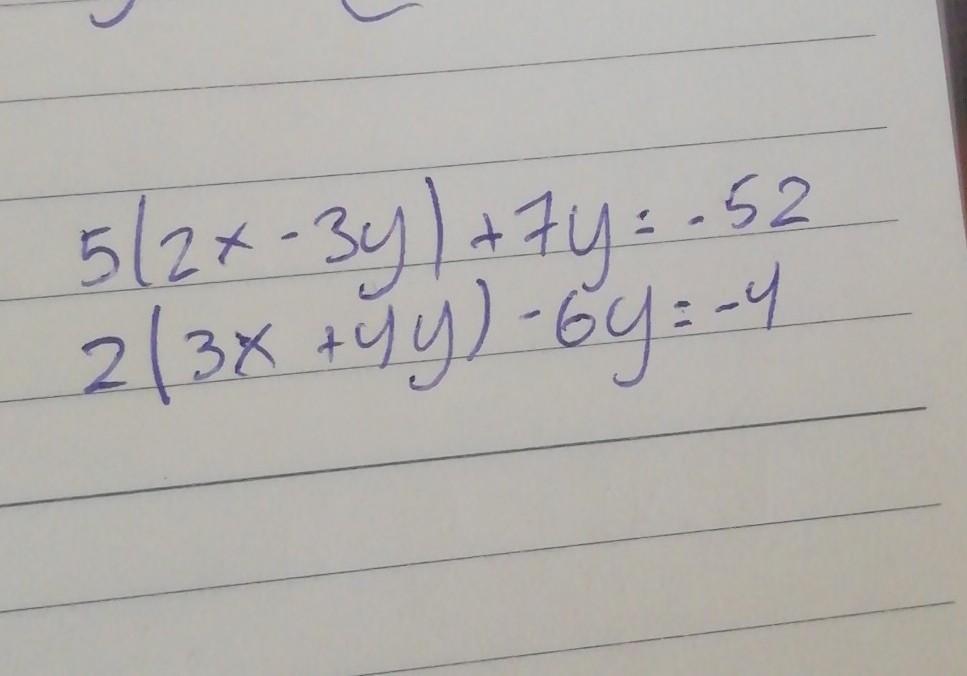 5(2x-3y)+7y=-52
2(3x+4y)-6y=-4